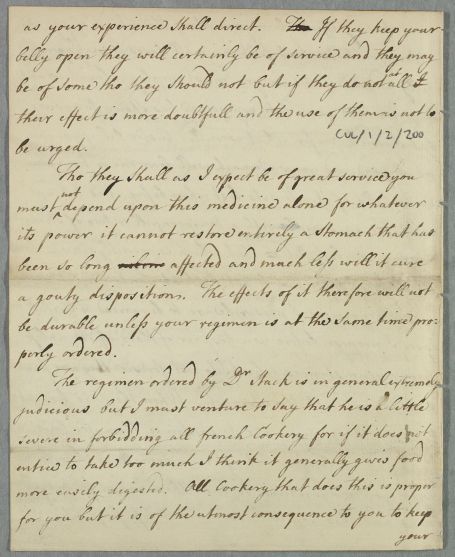 as your experience shall direct. The If they keep your
belly open they will certainly be of service and they may
be of some tho they should not but if they do not at all
their effect is more doubtfull and the use of them is not to
be urged.
CUL/1/2/200
Tho they shall as I expect be of great service you
must not depend upon this medicine alone for whatever
its power it cannot restore entirely a stomach that has
been so long affected and much less will it cure
a gouty disposition. The effects of it therefore will not
be durable unless your regimen is at the same time pro-
perly ordered.
The regimen ordered by Dr Mack is in general extremely
judicious but I must venture to say that he is a little
severe in forbidding all french Cookery for if it does not
entice to take too much I think it generally gives food
more easily digested. All Cookery that does this is proper
for you but it is of the utmost consequence to you to keep
your